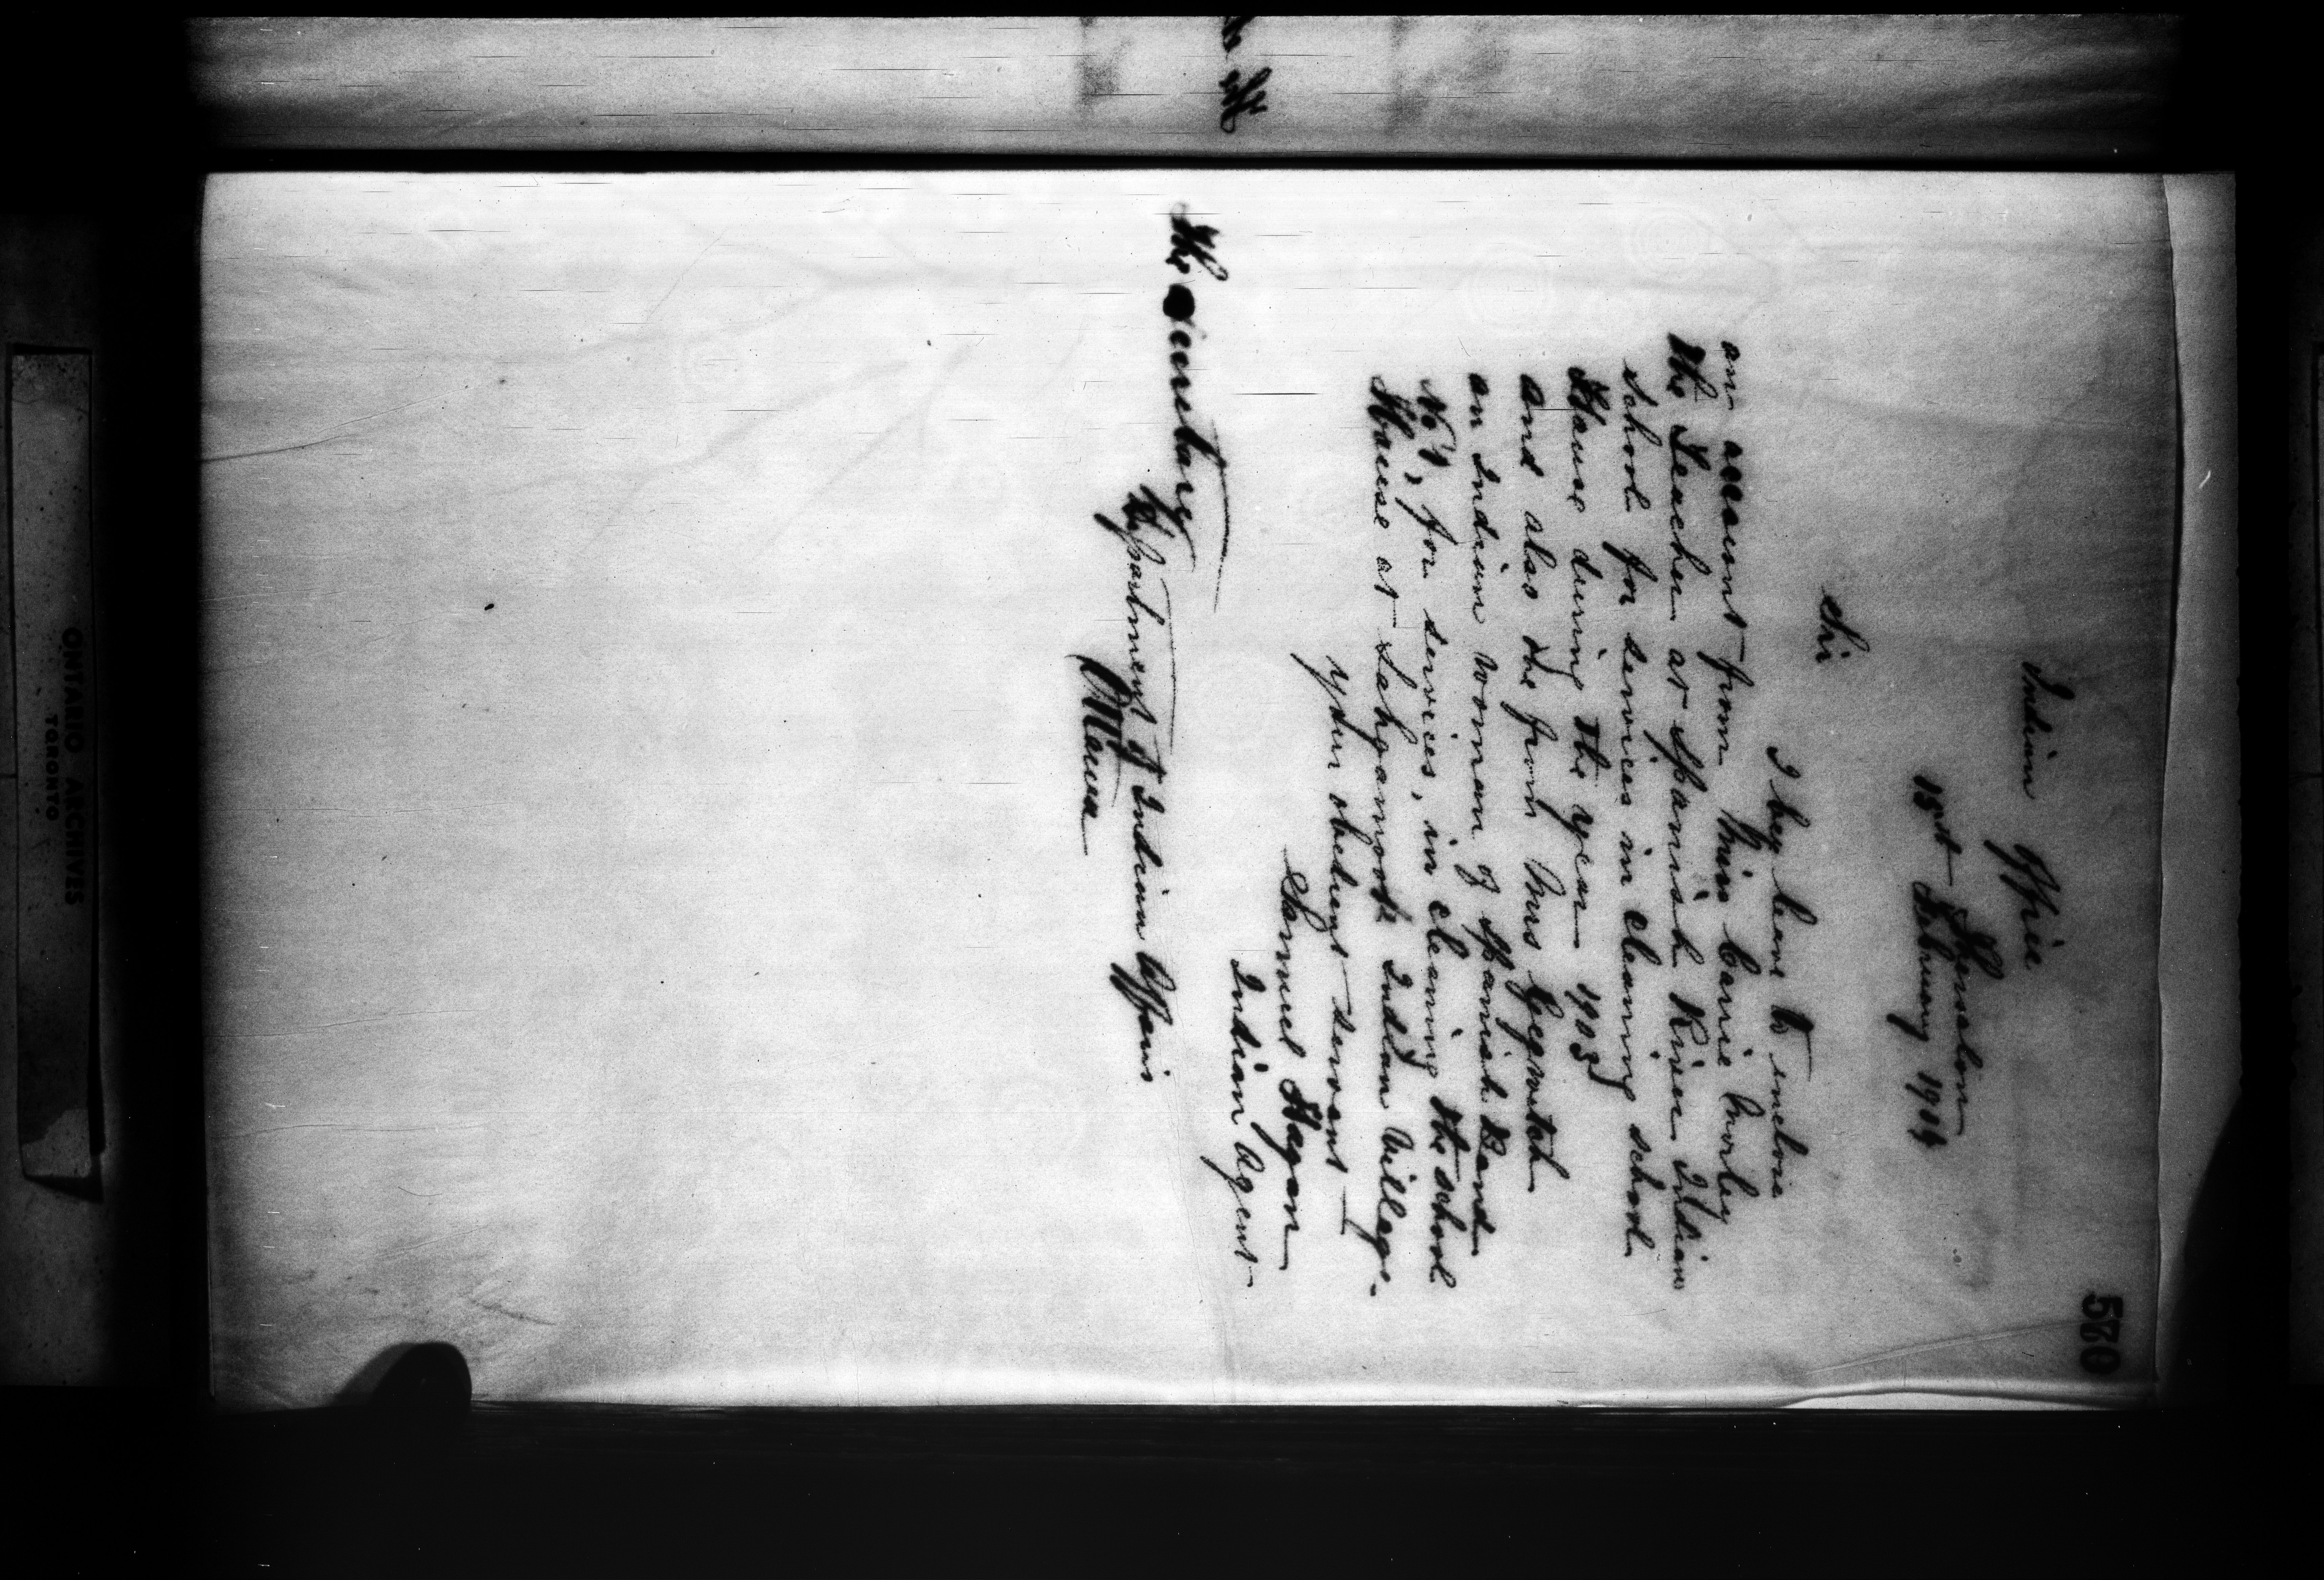 580
Indian Office
Thessalon
15th February 1904
Sir
I beg leave to inclose
an account from Miss Carrie Morley
the Teacher at Spanish River Indian
School for services in cleaning school
House during the year 1903
and also one from Mrs
an Indian woman of Spanish Band
No 1, for services, in cleaning the school
House at Sahgamook Indian Village.
your obedient servant
Samuel Hagan
Indian Agent
The Secretary
Department of Indian Affairs
Ottawa
ONTARIO ARCHIVES
TORONTO